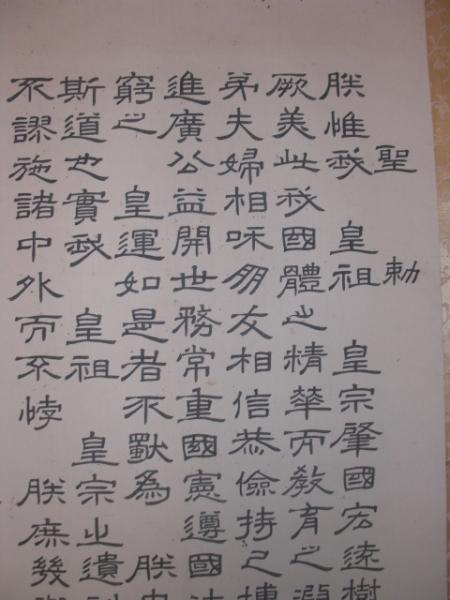 聖 勅
朕惟我 皇祖 皇宗肇國宏遠樹
厥美此我國體之精華而教育之淵
弟夫婦相和朋友相信恭儉持己博
進廣公益開世務常重國憲遵國
窮之 皇運如是者不獨為 朕
斯道也實我 皇祖 皇宗之遺
不謬施諸中外而不悖 朕庶幾